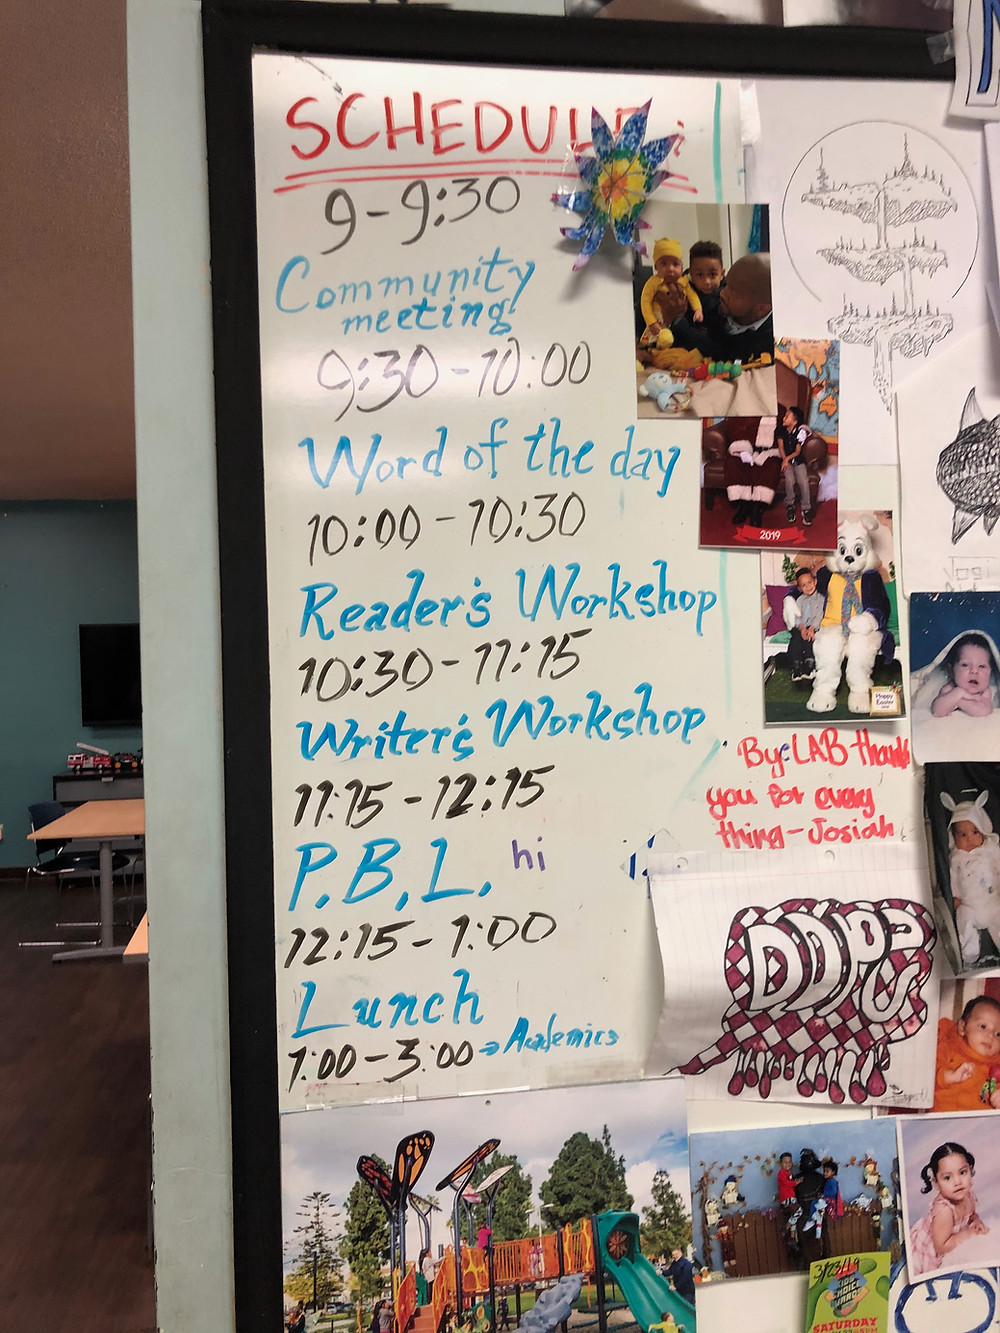 SCHEDULE:
9-9:30
Community
meeting
9:30-10:00
Word of the day
10:00-10:30
Reader's Workshop
10:30-11:15
Writer's Workshop
11:15-12:15
P.B.L. hi
12:15-1:00
Lunch
1:00-3:00→Academics
2019
Happy
Easter
By:LAB thank
you for every
thing-Josiah
3/23/19
KIDS
CHOICE
AWARDS
SATURDAY